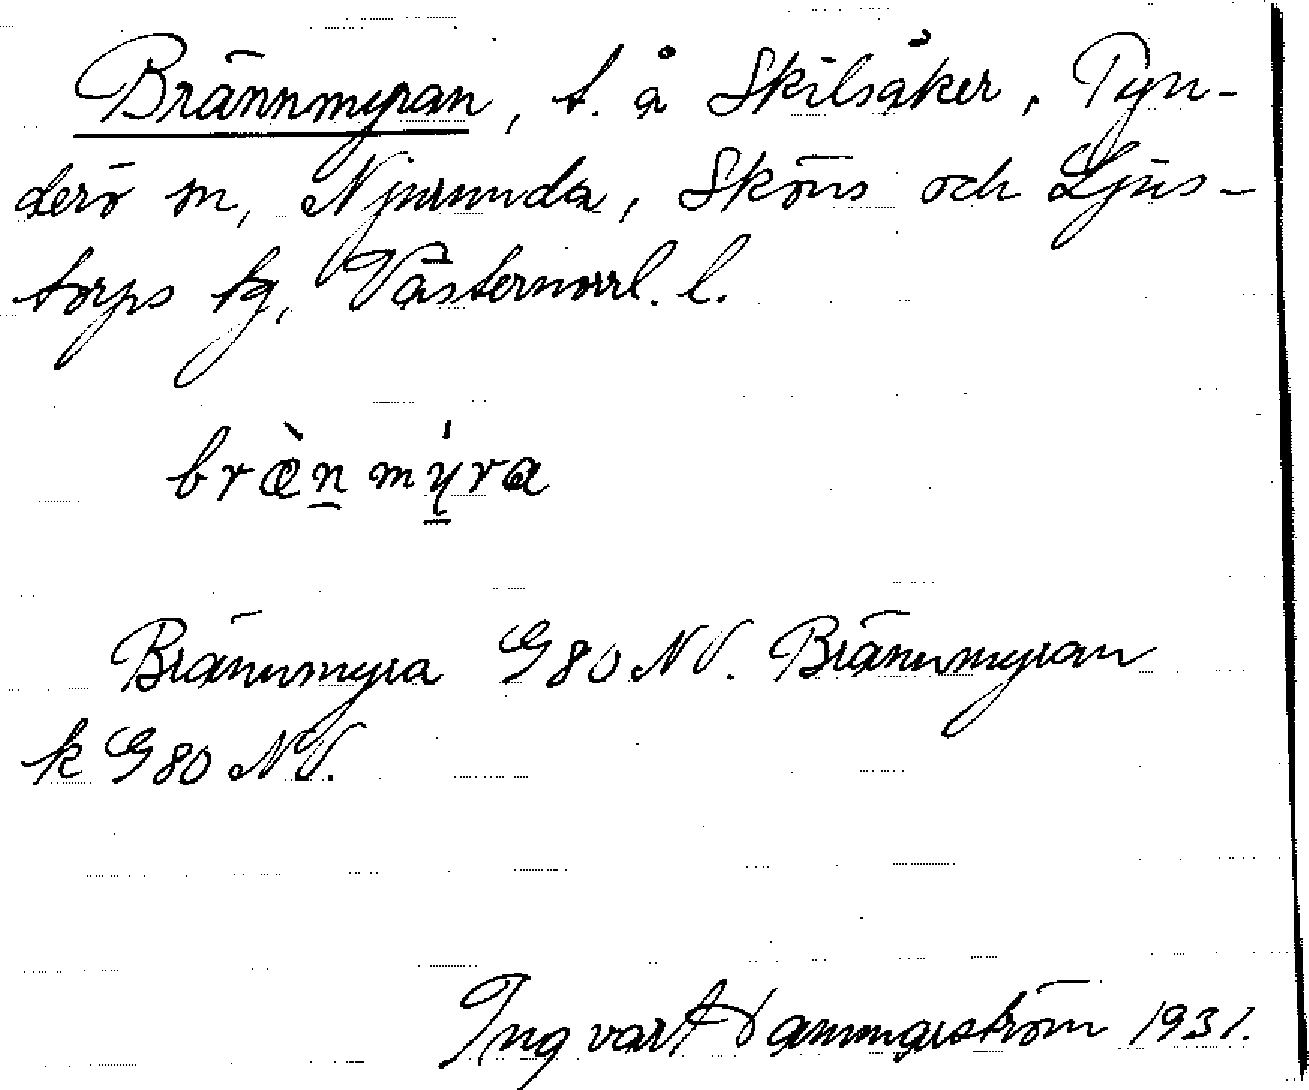 Brännmyran, t. å Skilsåker, Tyn-
derö sn, Njurunda, Sköns och Ljus-
torps tg, Västernorrl. l.
bræ̀n̲mý̲ra
Brännmyra G80NV. Brännmyran
k G80NV.
Ingvart Hammarström 1931.